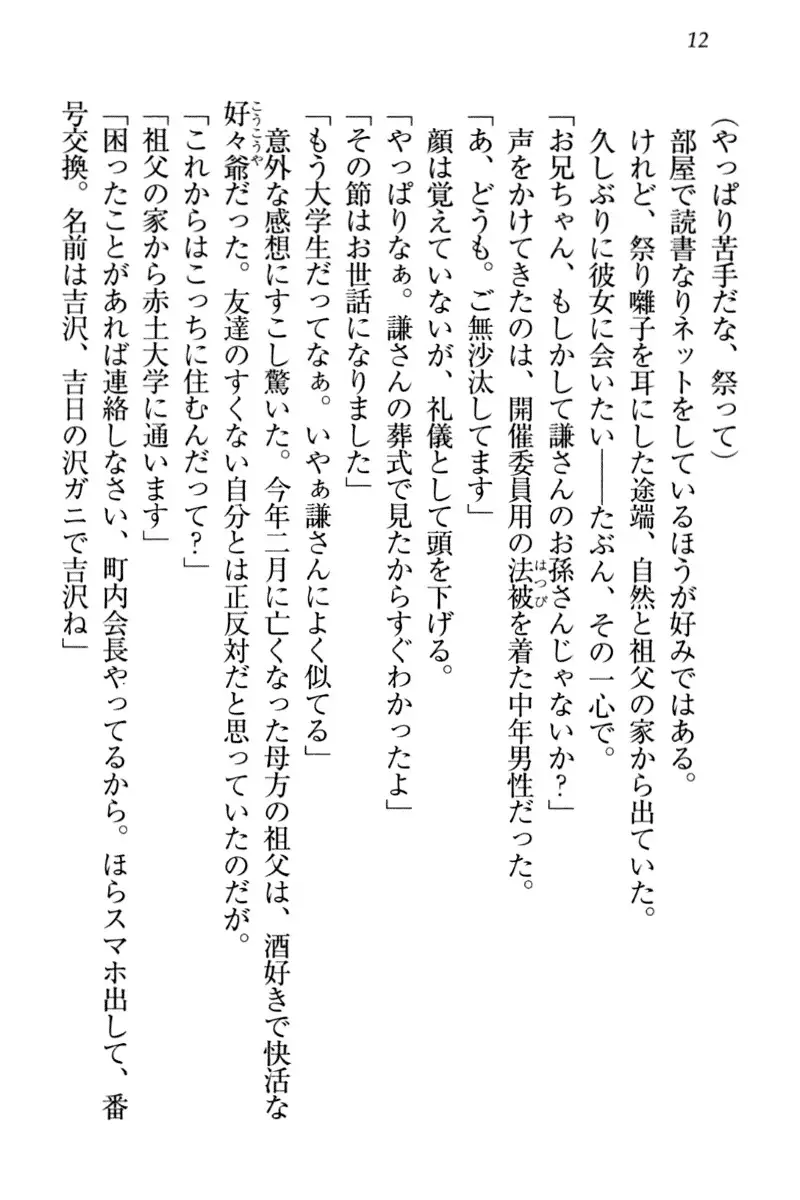 12
(やっぱり苦手だな、祭って)
部屋で読書なりネットをしているほうが好みではある。
けれど、祭り囃子を耳にした途端、自然と祖父の家から出ていた。
久しぶりに彼女に会いたい――たぶん、その一心で。
「お兄ちゃん、もしかして謙さんのお孫さんじゃないか?」
声をかけてきたのは、開催委員用の法被を着た中年男性だった。
はっぴ
「あ、どうも。ご無沙汰してます」
顔は覚えていないが、礼儀として頭を下げる。
「やっぱりなぁ。謙さんの葬式で見たからすぐわかったよ」
「その節はお世話になりました」
「もう大学生だってなぁ。いやぁ謙さんによく似てる」
意外な感想にすこし驚いた。今年二月に亡くなった母方の祖父は、酒好きで快活な
好々爺だった。友達のすくない自分とは正反対だと思っていたのだが。
こうこうや
「これからはこっちに住むんだって?」
「祖父の家から赤土大学に通います」
「困ったことがあれば連絡しなさい、町内会長やってるから。ほらスマホ出して、番
号交換。名前は吉沢、吉日の沢ガニで吉沢ね」